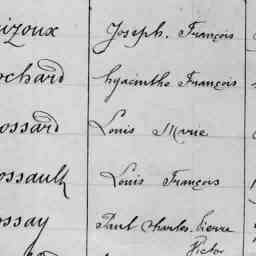 izoux Joseph. François
ochard hyacinthe François
ossard Louis Marie
ossault Louis François
ossay Paul Charles. Pierre
Victor